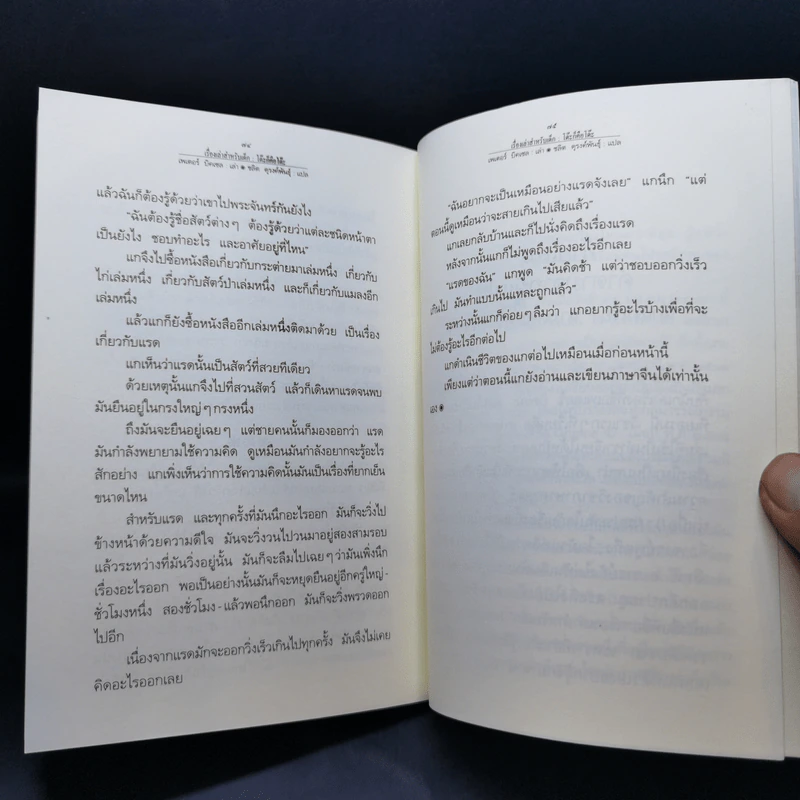 ๗๔
เรื่องเล่าสำหรับเด็ก : โต๊ะก็คือโต๊ะ
เพเตอร์ บิคเซล : เล่า ๏ ชลิต ดุรงค์พันธุ์ : แปล
แล้วฉันก็ต้องรู้ด้วยว่าเขาไปพระจันทร์กันยังไง
“ฉันต้องรู้ชื่อสัตว์ต่างๆ ต้องรู้ด้วยว่าแต่ละชนิดหน้าตา
เป็นยังไง ชอบทำอะไร และอาศัยอยู่ที่ไหน”
แกจึงไปซื้อหนังสือเกี่ยวกับกระต่ายมาเล่มหนึ่ง เกี่ยวกับ
ไก่เล่มหนึ่ง เกี่ยวกับสัตว์ป่าเล่มหนึ่ง และก็เกี่ยวกับแมลงอีก
เล่มหนึ่ง
แล้วแกก็ยังซื้อหนังสืออีกเล่มหนึ่งติดมาด้วย เป็นเรื่อง
เกี่ยวกับแรด
แกเห็นว่าแรดนั้นเป็นสัตว์ที่สวยทีเดียว
ด้วยเหตุนั้นแกจึงไปที่สวนสัตว์ แล้วก็เดินหาแรดจนพบ
มันยืนอยู่ในกรงใหญ่ๆ กรงหนึ่ง
ถึงมันจะยืนอยู่เฉยๆ แต่ชายคนนั้นก็มองออกว่า แรด
มันกำลังพยายามใช้ความคิด ดูเหมือนมันกำลังอยากจะรู้อะไร
สักอย่าง แกเพิ่งเห็นว่าการใช้ความคิดนั้นมันเป็นเรื่องที่ยากเย็น
ขนาดไหน
สำหรับแรด และทุกครั้งที่มันนึกอะไรออก มันก็จะวิ่งไป
ข้างหน้าด้วยความดีใจ มันจะวิ่งวนไปวนมาอยู่สองสามรอบ
แล้วระหว่างที่มันวิ่งอยู่นั้น มันก็จะลืมไปเฉยๆ ว่ามันเพิ่งนึก
เรื่องอะไรออก พอเป็นอย่างนั้นมันก็จะหยุดยืนอยู่อีกครู่ใหญ่-
ชั่วโมงหนึ่ง สองชั่วโมง-แล้วพอนึกออก มันก็จะวิ่งพรวดออก
ไปอีก
เนื่องจากแรดมักจะออกวิ่งเร็วเกินไปทุกครั้ง มันจึงไม่เคย
คิดอะไรออกเลย
๗๕
เรื่องเล่าสำหรับเด็ก : โต๊ะก็คือโต๊ะ
เพเตอร์ บิคเซล : เล่า ๏ ชลิต ดุรงค์พันธุ์ : แปล
“ฉันอยากจะเป็นเหมือนอย่างแรดจังเลย” แกนึก “แต่
ตอนนี้ดูเหมือนว่าจะสายเกินไปเสียแล้ว”
แกเลยกลับบ้านและก็ไปนั่งคิดถึงเรื่องแรด
หลังจากนั้นแกก็ไม่พูดถึงเรื่องอะไรอีกเลย
“แรดของฉัน” แกพูด “มันคิดช้า แต่ว่าชอบออกวิ่งเร็ว
เกินไป มันทำแบบนั้นแหละถูกแล้ว”
ระหว่างนั้นแกก็ค่อยๆ ลืมว่า แกอยากรู้อะไรบ้างเพื่อที่จะ
ไม่ต้องรู้อะไรอีกต่อไป
แกดำเนินชีวิตของแกต่อไปเหมือนเมื่อก่อนหน้านี้
เพียงแต่ว่าตอนนี้แกยังอ่านและเขียนภาษาจีนได้เท่านั้น
เอง ๏